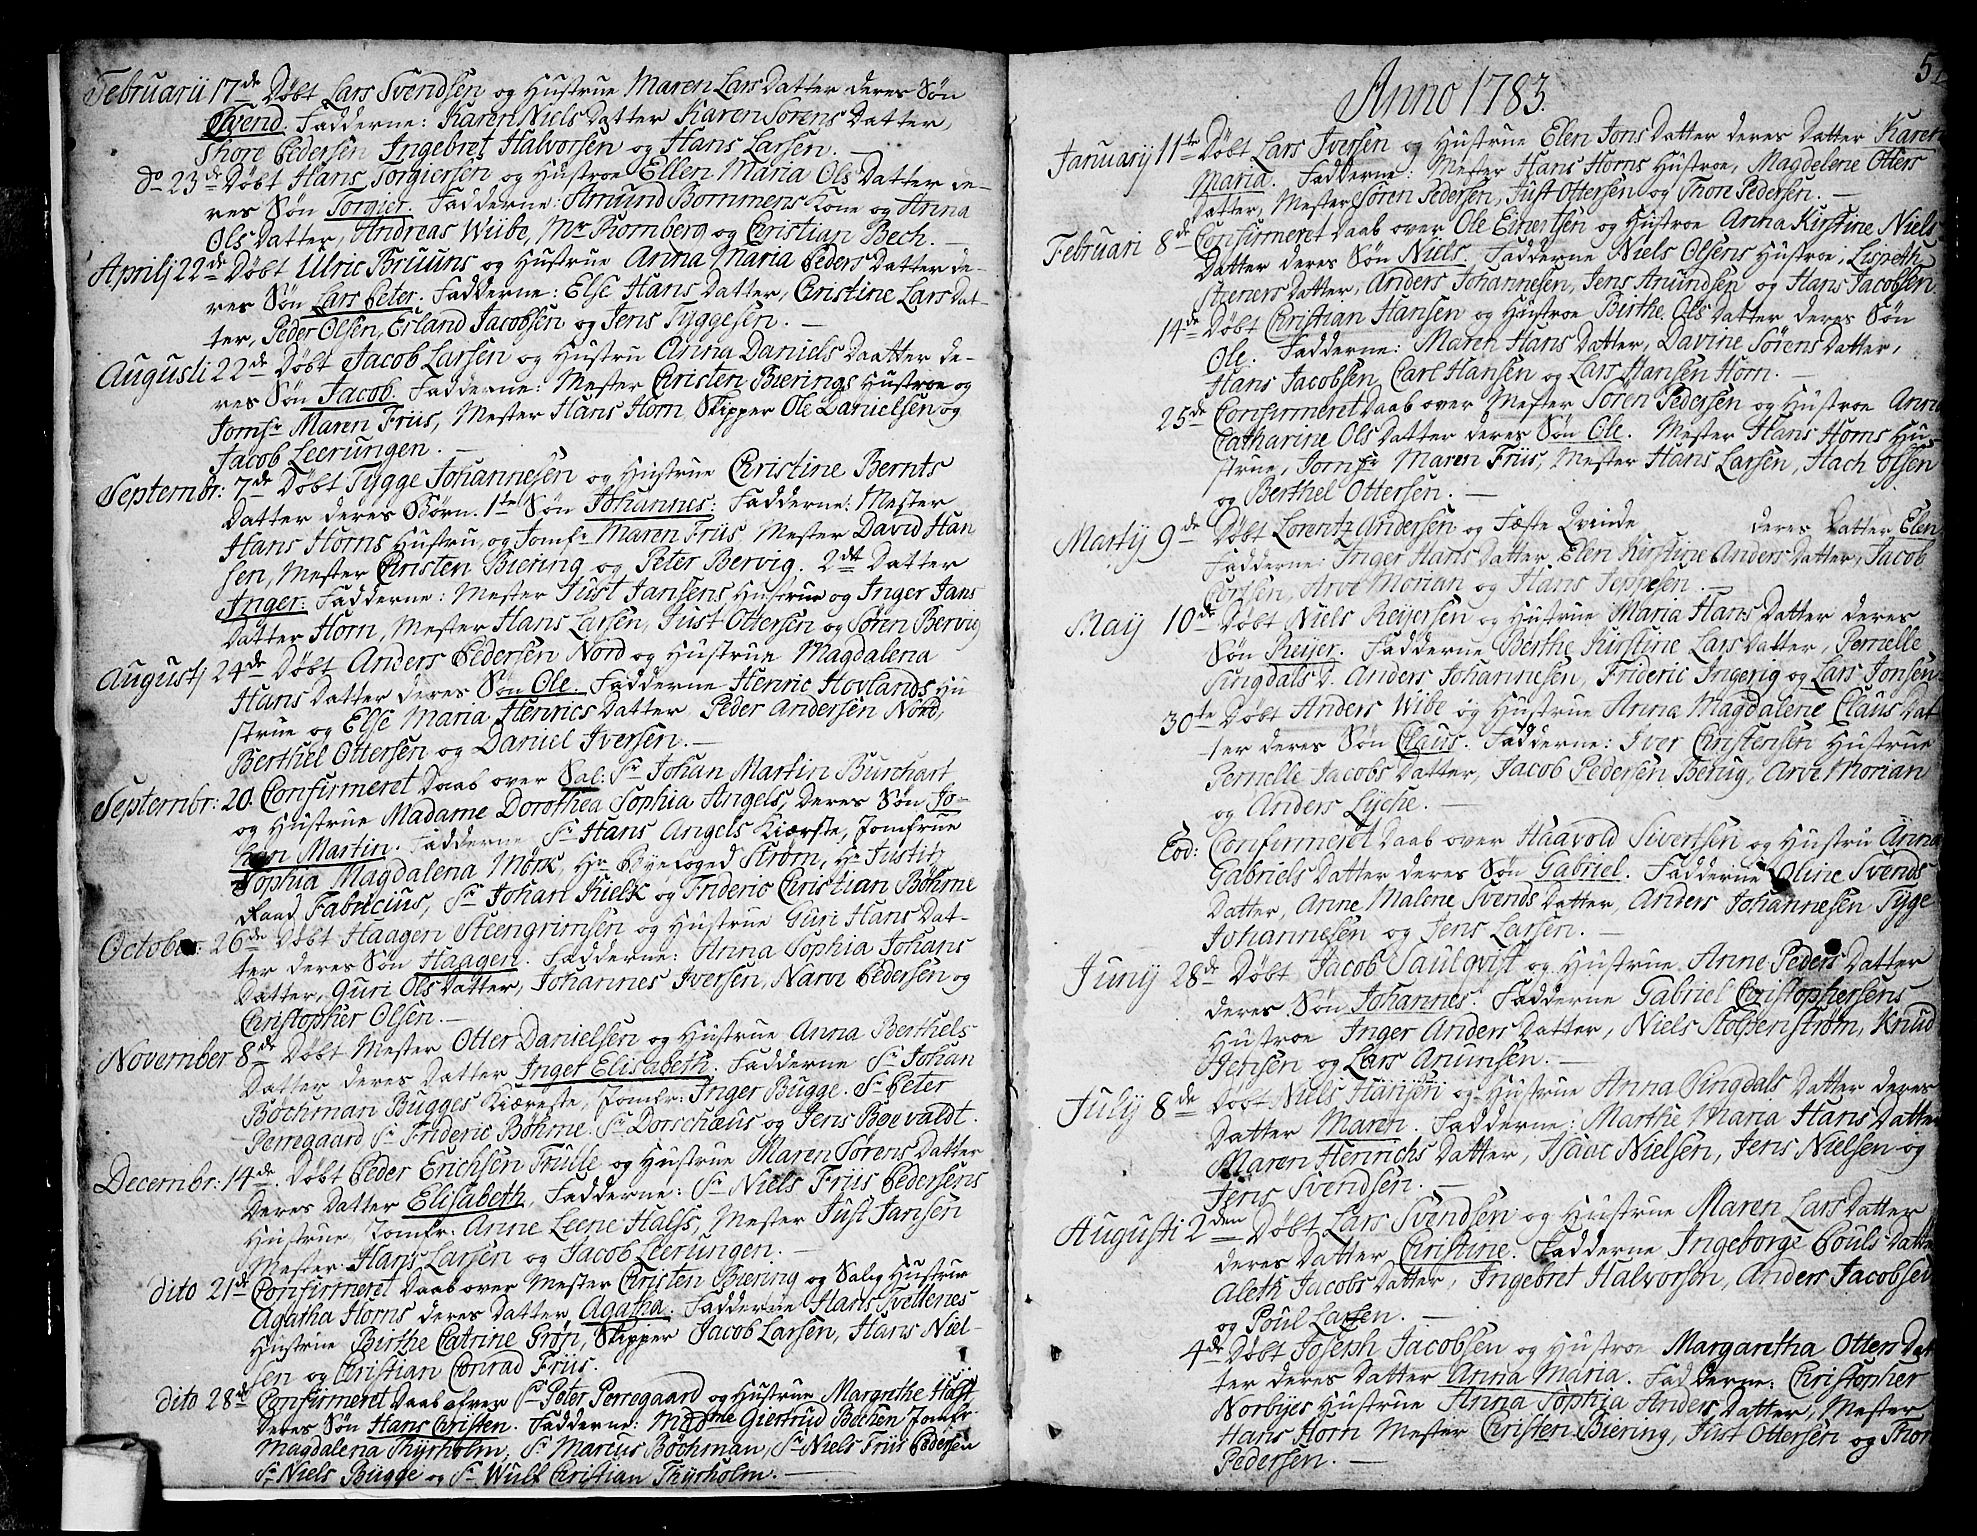 Februarii 17de Døbt Lars Svendsen og Hustrue Maren Lars Datter deres Søn
Svend. Fadderne: Karen Niels Datter Karen Sørens Datter,
Thore Pedersen Ingebret Halvorsen og Hans Larsen. —
do 23de Døbt Hans Torgiersen og Hustroe Ellen Maria Ols Datter de-
res Søn Torgier. Fadderne: Amund Bommens Kone og Anna
Ols Datter, Andreas Wiibe, Mr Romberg og Christian Bech. —
Aprilj 22de Døbt Ulric Bruuns og Hustrue Anna Maria Peders Datter de-
res Søn Lars Peter. Fadderne: Else Hans Datter, Christine Lars Dat-
ter, Peder Olsen, Erland Jacobsen og Jens Tyggesen. —
Augusti 22de Døbt Jacob Larsen og Hustru Anna Daniels Daatter de-
res Søn Jacob. Fadderne: Mester Christen Bierings Hustroe og
Jomfr Maren Friis, Mester Hans Horn Skipper Ole Danielsen og
Jacob Leerungen. —
Septembr: 7de Døbt Tygge Johannesen og Hustrue Christine Bernts
Datter deres Børn. 1te Søn Johannes: Fadderne: Mester
Hans Horns Hustru, og Jomfr Maren Friis, Mester David Han
sen, Mester Christen Biering og Peter Bervig. 2det Datter
Inger. Fadderne: Mester Just Jansens Hustrue og Inger Jans
Datter Horn, Mester Hans Larsen, Just Ottersen og Søren Bervig
Augustj 24de Døbt Anders Pedersen Nord og Hustrue Magdalena
Hans Datter deres Søn Ole. Fadderne Henric Hovlands Hu
strue og Else Maria Henrics Datter, Peder Andersen Nord,
Berthel Ottersen og Daniel Iversen. —
Septembr: 20. Confirmeret Daab over Sal: Sr Johan Martin Burchart
og Hustrue Madame Dorothea Sophia Angels, Deres Søn Jo-
han Martin. Fadderne Sr Hans Angels Kiærste, Jomfrue
Sophia Magdalena Mørk, Hr Byefoged Strøm, Hr Justitz
Raad Fabricius, Sr Johan Kielk og Frideric Christian Bøhme
October: 26de Døbt Haagen Steengrimsen og Hustrue Guri Hans Dat-
ter deres Søn Haagen. Fadderne: Anna Sophia Johans
Datter, Guri Ols Datter, Johannes Iversen, Narve Pedersen og
Christopher Olsen. —
November 8de Døbt Mester Otter Danielsen og Hustrue Anna Berthels
Datter deres Datter Inger Elisabeth. Fadderne Sr Johan
Bochman Bugges Kiæreste, Jomfr: Inger Bugge. Sr Peter
Perregaard Sr Frideric Bøhme. Sr Dorschæus og Jens Bøevaldt.
Decembr: 14de. Døbt Peder Erichsen Trulle og Hustrue Maren Sørens Datter
Deres Datter Elisabeth, Fadderne: Sr Niels Friis Pedersens
Hustrue, Jomfr: Anne Leene Halss, Mester Just Jansen
Mester Hans Larsen og Jacob Leerungen. —
dito 21de Confirmeret Daab over Mester Christen Biering og Salig Hustrue
Agatha Horns deres Datter Agatha. Fadderne Hans Tvetenes
Hustrue Birthe Catrine Grøn, Skipper Jacob Larsen, Hans Niel-
sen og Christian Conrad Friis.
dito 28de Confirmeret Daab ofver Sr Peter Perregaard og Hustrue Margrethe Holst
Deres Søn Hans Christen. Fadderne: Madme Giertrud Bochen Jomfr.
Magdalena Thyrholm, Sr Marcus Bochman, Sr Niels Friis Pedersen
Sr Niels Bugge og Sr Wulf Christian Thyrholm. —
5
Anno 1783.
Januarij 11te Døbt Lars Iversen og Hustrue Elen Jons Datter deres Datter Karen
Maria. Fadderne: Mester Hans Horns Hustroe, Magdelene Otters
Datter, Mester Søren Pedersen, Just Ottersen og Thore Pedersen. —
Februari 8de Confirmeret Daab over Ole Einertsen og Hustroe Anna Kirstine Niels
Datter deres Søn Niels. Fadderne Niels Olsens Hustroe, Lisbeth
Steeners Datter, Anders Johannesen, Jens Amundsen og Hans Jacobsen
14de Døbt Christian Hansen og Hustroe Birthe Ols Datter deres Søn
Ole. Fadderne: Maren Hans Datter, Davine Sørens Datter,
Hans Jacobsen, Carl Hansen og Lars Hansen Horn. —
25de Confirmeret Daab over Mester Søren Pedersen og Hustroe Anna
Catharine Ols Datter deres Søn Ole. Mester Hans Horns Hu-
strue, Jomfr Maren Friis, Mester Hans Larsen, Hach Olsen
og Berthel Ottersen. —
Martij 9de Døbt Lorentz Andersen og Fæste Qvinde deres Datter Elen
Fadderne: Inger Hans Datter, Elen Kirstine Anders Datter, Jacob
Corssen, Arve Morian og Hans Jeppesen. —
Maij 10de Døbt Niels Reijersen og Hustrue Maria Hans Datter deres
Søn Reijer. Fadderne Berthe Kirstine Lars Datter, Pernelle
Singdals D. Anders Johannesen, Frideric Ingerig og Lars Jonsen
30te Døbt Anders Wibe og Hustrue Anna Magdalene Claus Dat
ter deres Søn Claus. Fadderne: Iver Christensen Hustrue
Pernelle Jacobs Datter, Jacob Pedersen Berug, Arve Morian
og Anders Lyche. —
Eod: Confirmeret Daab over Haavold Sivertsen og Hustru Anna
Gabriels Datter deres Søn Gabriel. Fadderne Oline Svends
Datter, Anne Malene Svends Datter, Anders Johannesen Tyge
Johannesen og Jens Larsen. —
Junij 28de Døbt Jacob Saulqvist og Hustrue Anne Peders Datter
deres Søn Johannes. Fadderne Gabriel Christophersens
Hustroe Inger Anders Datter, Niels Stoltenstrøm, Knud
Jensen og Lars Amunsen. —
Julij 8de Døbt Niels Hansen og Hustrue Anna Singdals Datter deres
Datter Maren. Fadderne: Marthe Maria Hans Datter
Maren Henrichs Datter, Isaac Nielsen, Jens Nielsen og
Jens Svendsen. —
Augusti 2den Døbt Lars Svendsen og Hustrue Maren Lars Datter
deres Datter Christine. Fadderne Ingeborge Pouls Datte
Aleth Jacobs Datter, Ingebret Halvorsen, Anders Jacobsen
og Poul Larsen. —
4de Døbt Joseph Jacobsen og Hustroe Margaretha Otters Dat
ter deres Datter Anna Maria. Fadderne: Christopher
Norbyes Hustrue Anna Sophia Anders Datter, Mester
Hans Horn Mester Christen Biering, Just Ottersen og Thor
Pedersen. —